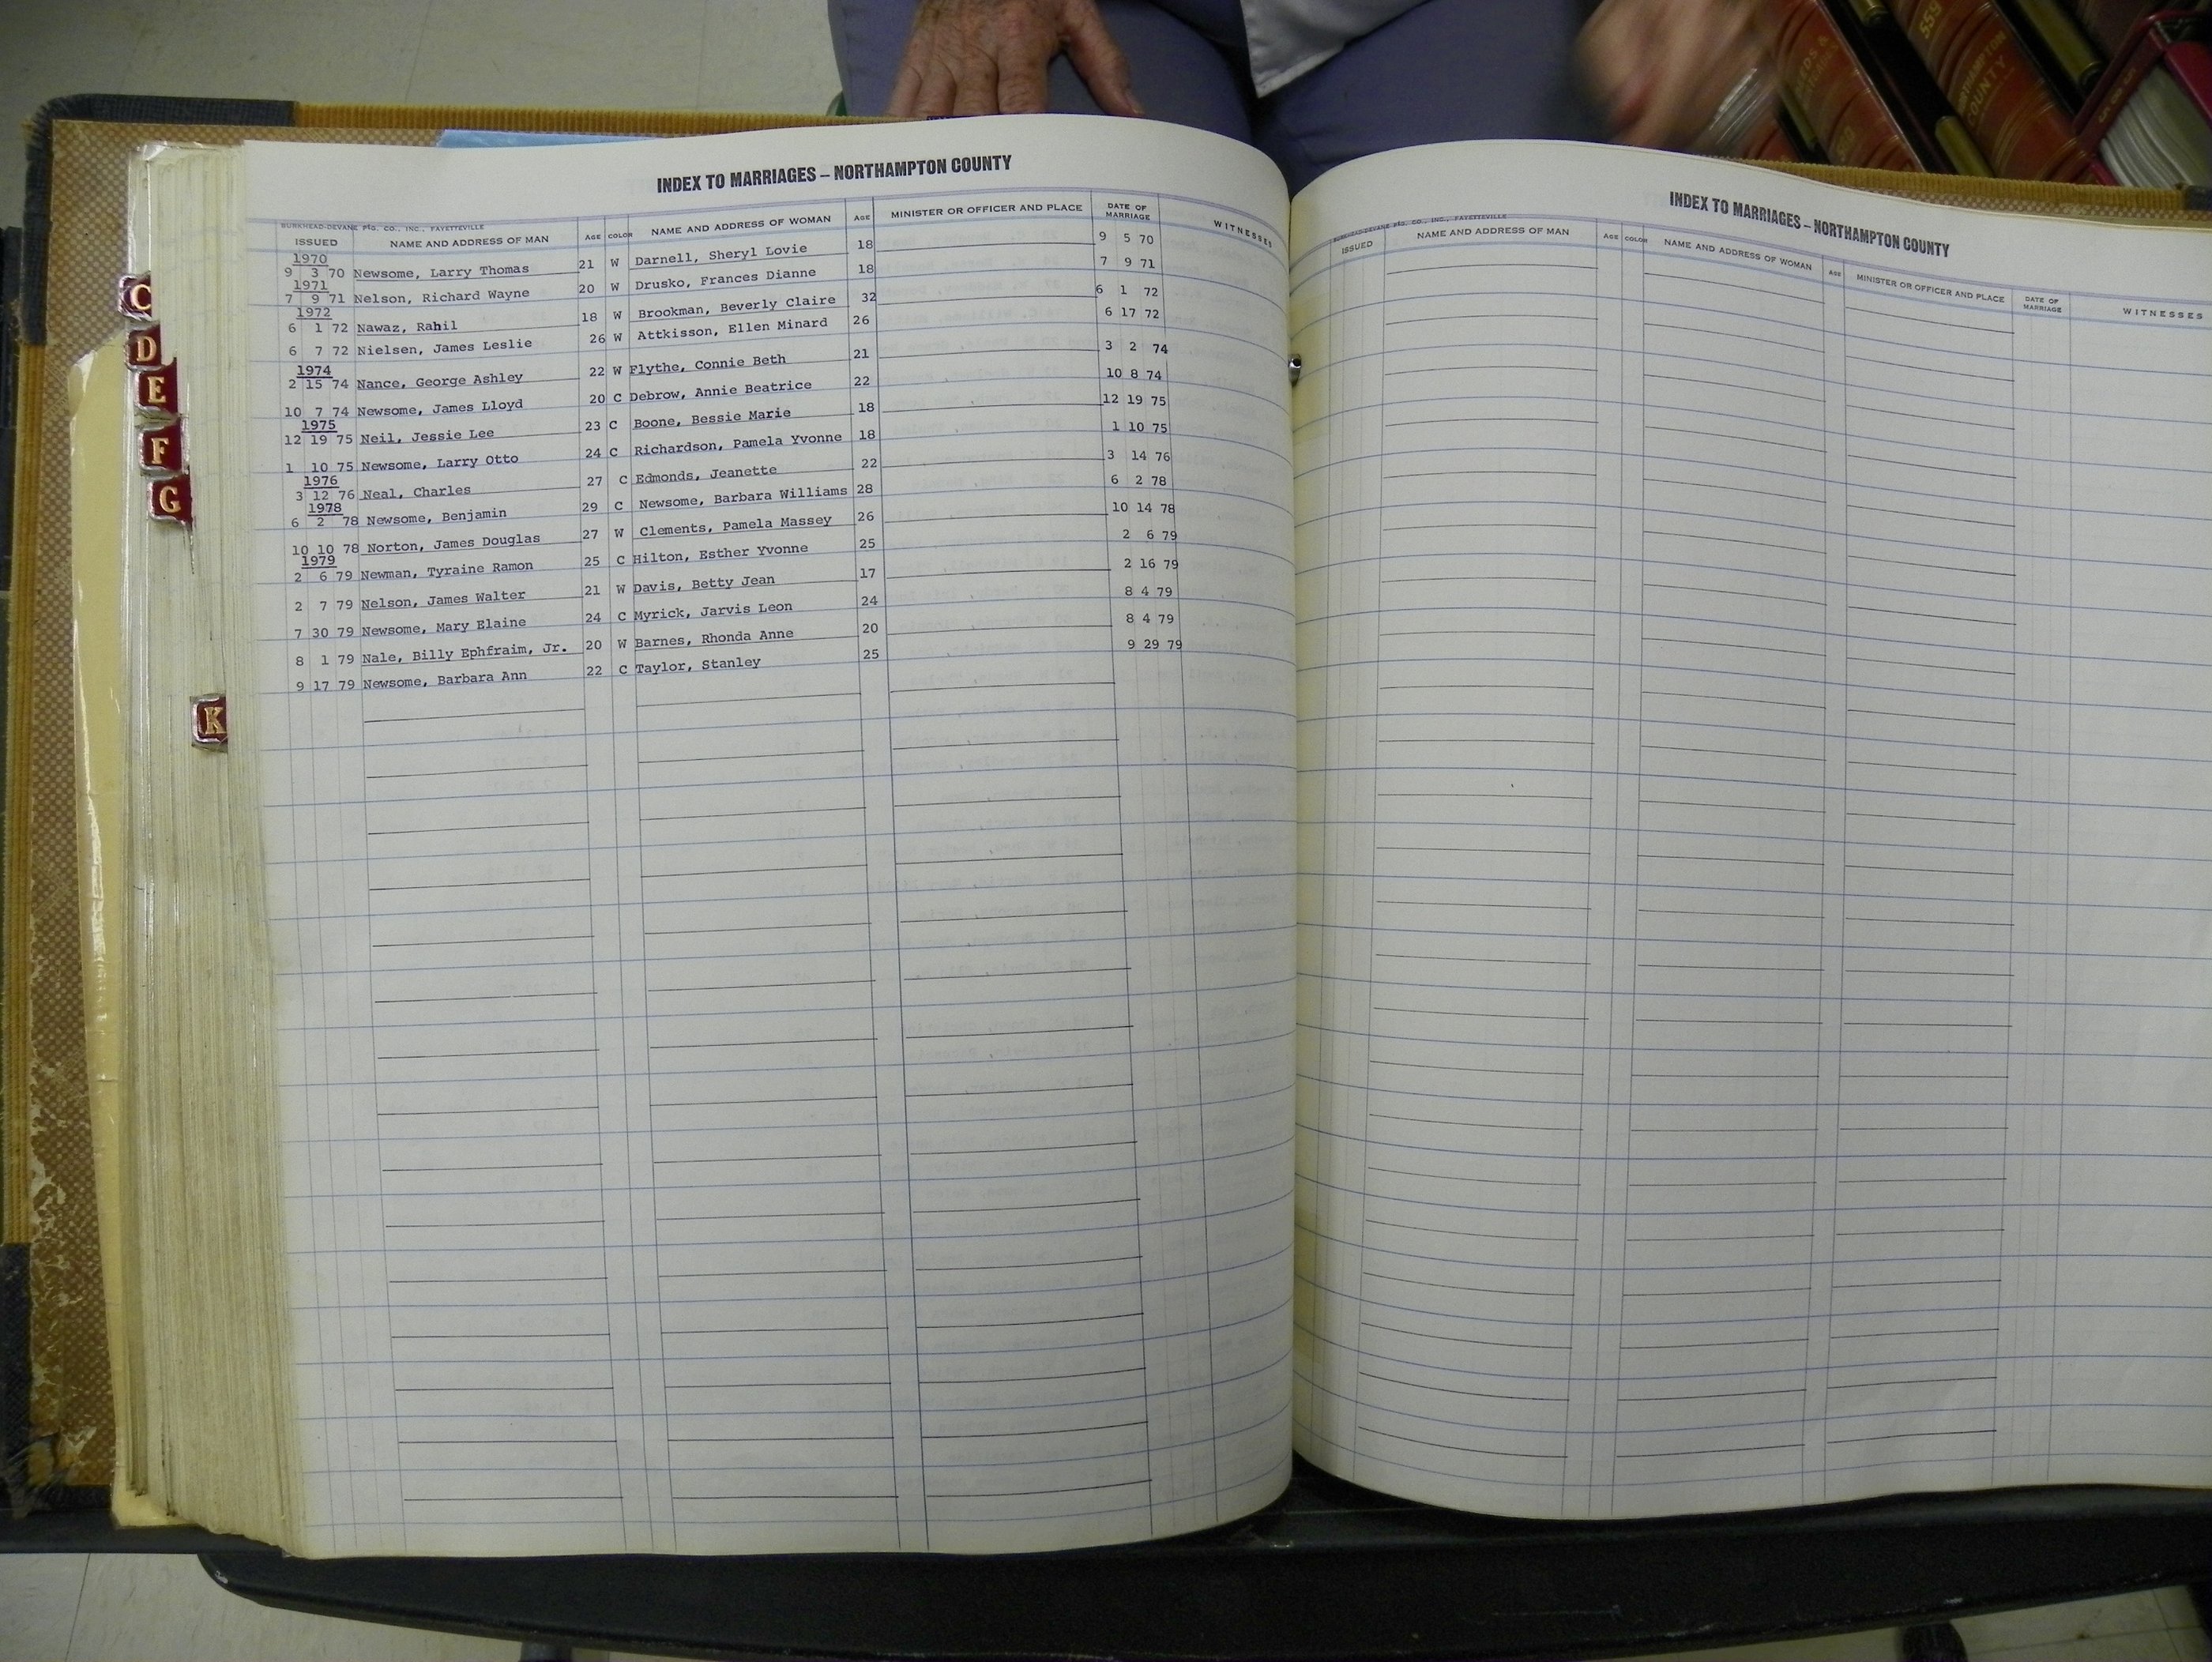 559
NORTHAMPTON COUNTY
INDEX TO MARRIAGES – NORTHAMPTON COUNTY
BURKHEAD-DEVANE PTG. CO., INC., FAYETTEVILLE
ISSUED NAME AND ADDRESS OF MAN AGE COLOR NAME AND ADDRESS OF WOMAN AGE MINISTER OR OFFICER AND PLACE DATE OF MARRIAGE WITNESSES
1970
9 3 70 Newsome, Larry Thomas 21 W Darnell, Sheryl Lovie 18 9 5 70
1971
7 9 71 Nelson, Richard Wayne 20 W Drusko, Frances Dianne 18 7 9 71
1972
6 1 72 Nawaz, Rahil 18 W Brookman, Beverly Claire 32 6 1 72
6 7 72 Nielsen, James Leslie 26 W Attkisson, Ellen Minard 26 6 17 72
1974
2 15 74 Nance, George Ashley 22 W Flythe, Connie Beth 21 3 2 74
10 7 74 Newsome, James Lloyd 20 C Debrow, Annie Beatrice 22 10 8 74
1975
12 19 75 Neil, Jessie Lee 23 C Boone, Bessie Marie 18 12 19 75
1 10 75 Newsome, Larry Otto 24 C Richardson, Pamela Yvonne 18 1 10 75
1976
3 12 76 Neal, Charles 27 C Edmonds, Jeanette 22 3 14 76
1978
6 2 78 Newsome, Benjamin 29 C Newsome, Barbara Williams 28 6 2 78
10 10 78 Norton, James Douglas 27 W Clements, Pamela Massey 26 10 14 78
1979
2 6 79 Newman, Tyraine Ramon 25 C Hilton, Esther Yvonne 25 2 6 79
2 7 79 Nelson, James Walter 21 W Davis, Betty Jean 17 2 16 79
7 30 79 Newsome, Mary Elaine 24 C Myrick, Jarvis Leon 24 8 4 79
8 1 79 Nale, Billy Ephfraim, Jr. 20 W Barnes, Rhonda Anne 20 8 4 79
9 17 79 Newsome, Barbara Ann 22 C Taylor, Stanley 25 9 29 79
C
D
E
F
G
K
INDEX TO MARRIAGES – NORTHAMPTON COUNTY
BURKHEAD-DEVANE PTG. CO., INC., FAYETTEVILLE
ISSUED NAME AND ADDRESS OF MAN AGE COLOR NAME AND ADDRESS OF WOMAN AGE MINISTER OR OFFICER AND PLACE DATE OF MARRIAGE WITNESSES